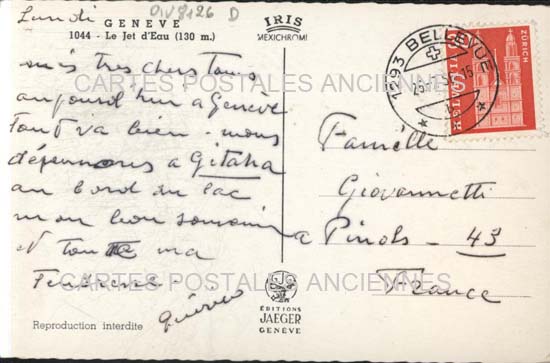 Lundi
GENEVE
1044 - Le Jet d'Eau (130 m.)
IRIS
MEXICHROME
D
mes tres chers Tous
aujourd'hui a Geneve
tout va bien - nous
dejeunons a Gitana
au bord du lac
mon bon souvenir
et toute ma
Tendresse -
Famille
Giovannetti
a Pinols - 43
France
1293 BELLEVUE
HELVETIA
ZÜRICH
CARTES POSTALES ANCIENNES
CARTES POSTALES ANCIENNES
EDITIONS
JAEGER
GENÈVE
Reproduction interdite